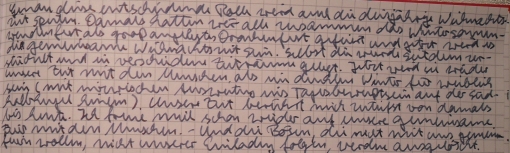 Genau diese entscheidende Rolle wird auch die diesjährige Weihnachts-
zeit spielen. Damals hatten wir alle zusammen das Wintersonnen-
wendenfest als groß angelegtes Drachenfest gefeiert und jetzt wird es
die gemeinsame Weihnachtszeit sein. Selbst die wurde seit dem
und in verschiedene Zeiträume gelegt. Jetzt wird es wieder
unsere Zeit mit den Menschen als im dunklen Winter für
sein (mit Ausweitung ins Tagesbewusstsein auf der Süd-
halbkugel). Unsere Zeit berührt mich zutiefst von damals
bis heute. Ich freue mich schon wieder auf unsere gemeinsame
Zeit mit den Menschen. - Und die Bösen, die nicht mit uns gemein-
sam wollen, nicht unserer Einladung folgen, werden ausgelöscht.